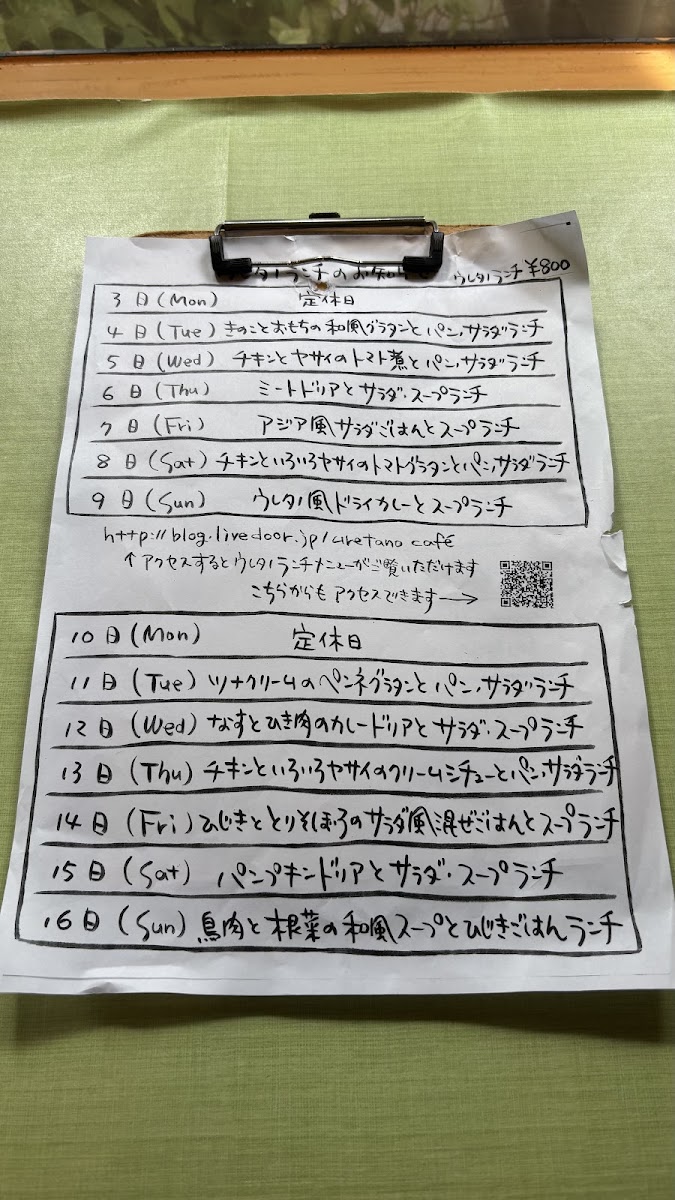 ランチのお知らせ ウレタノランチ ¥800
3日(Mon) 定休日
4日(Tue) きのことおもちの和風グラタンとパン,サラダランチ
5日(Wed) チキンとヤサイのトマト煮とパン,サラダランチ
6日(Thu) ミートドリアとサラダ・スープランチ
7日(Fri) アジア風サラダごはんとスープランチ
8日(Sat) チキンといろいろヤサイのトマトグラタンとパン,サラダランチ
9日(Sun) ウレタノ風ドライカレーとスープランチ
http://blog.livedoor.jp/uretano café
↑アクセスするとウレタノランチメニューがご覧いただけます
こちらからもアクセスできます→
10日(Mon) 定休日
11日(Tue) ツナクリームのペンネグラタンとパン,サラダランチ
12日(Wed) なすとひき肉のカレードリアとサラダ・スープランチ
13日(Thu) チキンといろいろヤサイのクリームシチューとパン,サラダランチ
14日(Fri) ひじきととりそぼろのサラダ風混ぜごはんとスープランチ
15日(Sat) パンプキンドリアとサラダ・スープランチ
16日(Sun) 鳥肉と根菜の和風スープとひじきごはんランチ